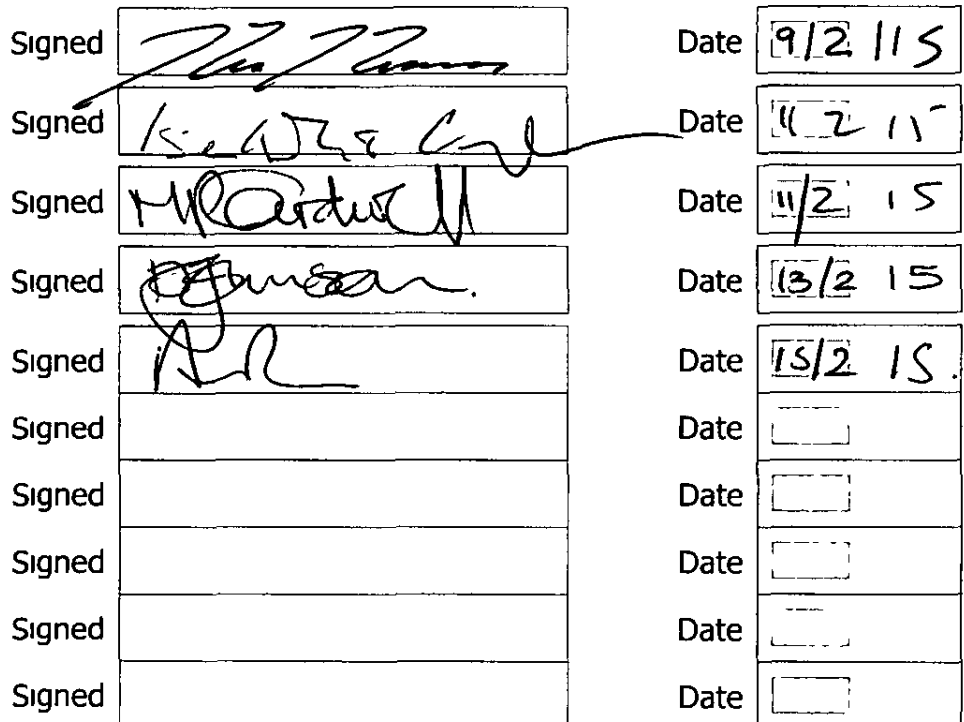 Signed Date 9/2 /15
Signed Date 11 2 15
Signed Date 11/2 15
Signed Date 13/2 15
Signed Date 15/2 15.
Signed Date
Signed Date
Signed Date
Signed Date
Signed Date